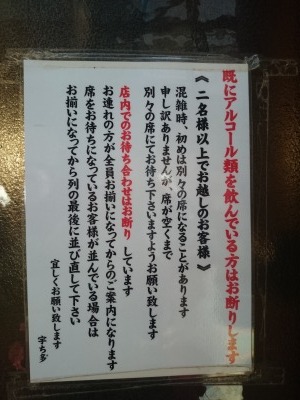 既にアルコール類を飲んでいる方はお断りします
《二名様以上でお越しのお客様》
混雑時、初めは別々の席になることがあります
申し訳ありませんが、席が空くまで
別々の席にてお待ち下さいますようお願い致します
店内でのお待ち合わせはお断りしています
お連れの方が全員お揃いになってからのご案内になります
席をお待ちになっているお客様が並んでいる場合は
お揃いになってから列の最後に並び直して下さい
宜しくお願い致します
宇ち多